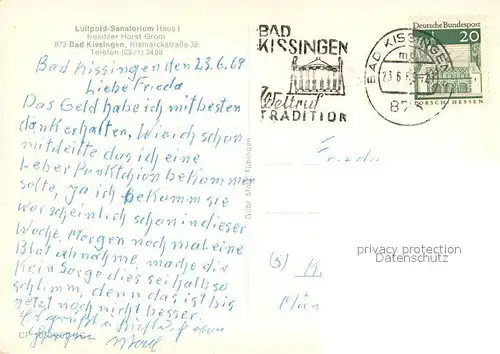 Luitpold-Sanatorium Haus I
besitzer Horst Grom
873 Bad Kissingen, Bismarckstraße 38
Telefon (0971) 3498
Bad Kissingen den 23.6.69
Liebe Frieda
Das Geld habe ich mit besten
dank erhalten, Wie ich schon
mitteilte das ich eine
Leber Punktchion bekommen
solte, ja ich bekomm sie
warscheinlich schon in dieser
Woche, Morgen noch mal eine
Blut abnahme, mache dir
kein Sorge dies sei halb so
schlimm, denn das ist bis
jetzt noch nicht besser.
Es grüßt
Gebr. Metz Tübingen
BAD
KISSINGEN
Weltruf
TRADITION
BAD KISSINGEN
23.6.6
Deutsche Bundespost
20
LORSCH HESSEN
Frieda
(8) K
Mün
privacy protection